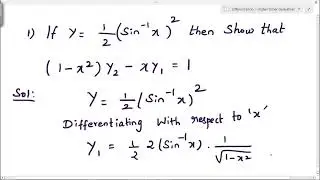 1) If y = 1/2 (Sin⁻¹x)² then show that
(1-x²) y₂ - xy₁ = 1
Sol: y = 1/2 (Sin⁻¹x)²
Differentiating with respect to 'x'
y₁ = 1/2 2(Sin⁻¹x) · 1/√(1-x²)